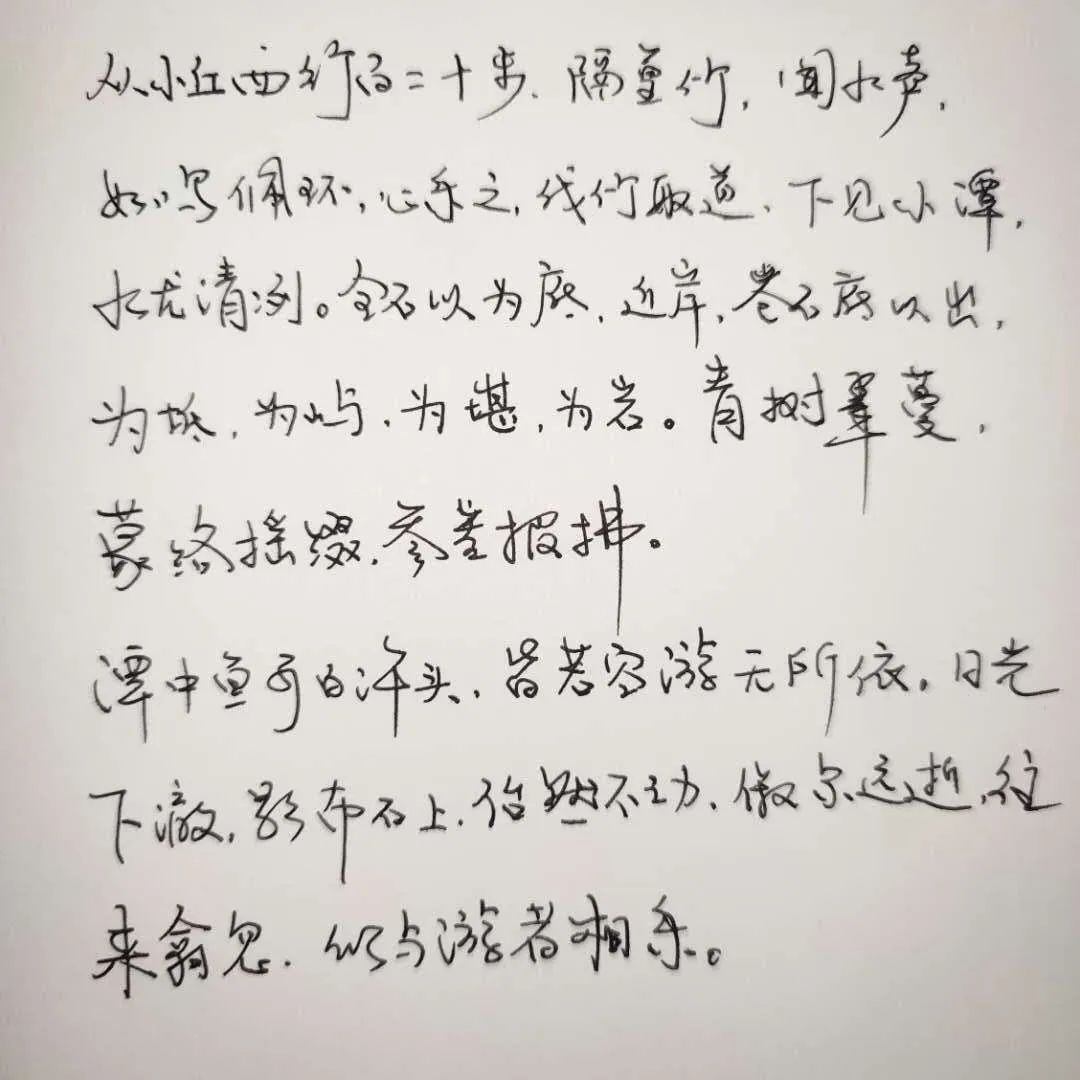 从小丘西行百二十步，隔篁竹，闻水声，
如鸣佩环，心乐之，伐竹取道，下见小潭，
水尤清冽。全石以为底，近岸，卷石底以出，
为坻，为屿，为堪，为岩。青树翠蔓，
蒙络摇缀，参差披拂。
潭中鱼可百许头，皆若空游无所依，日光
下澈，影布石上，佁然不动，俶尔远逝，往
来翕忽，似与游者相乐。